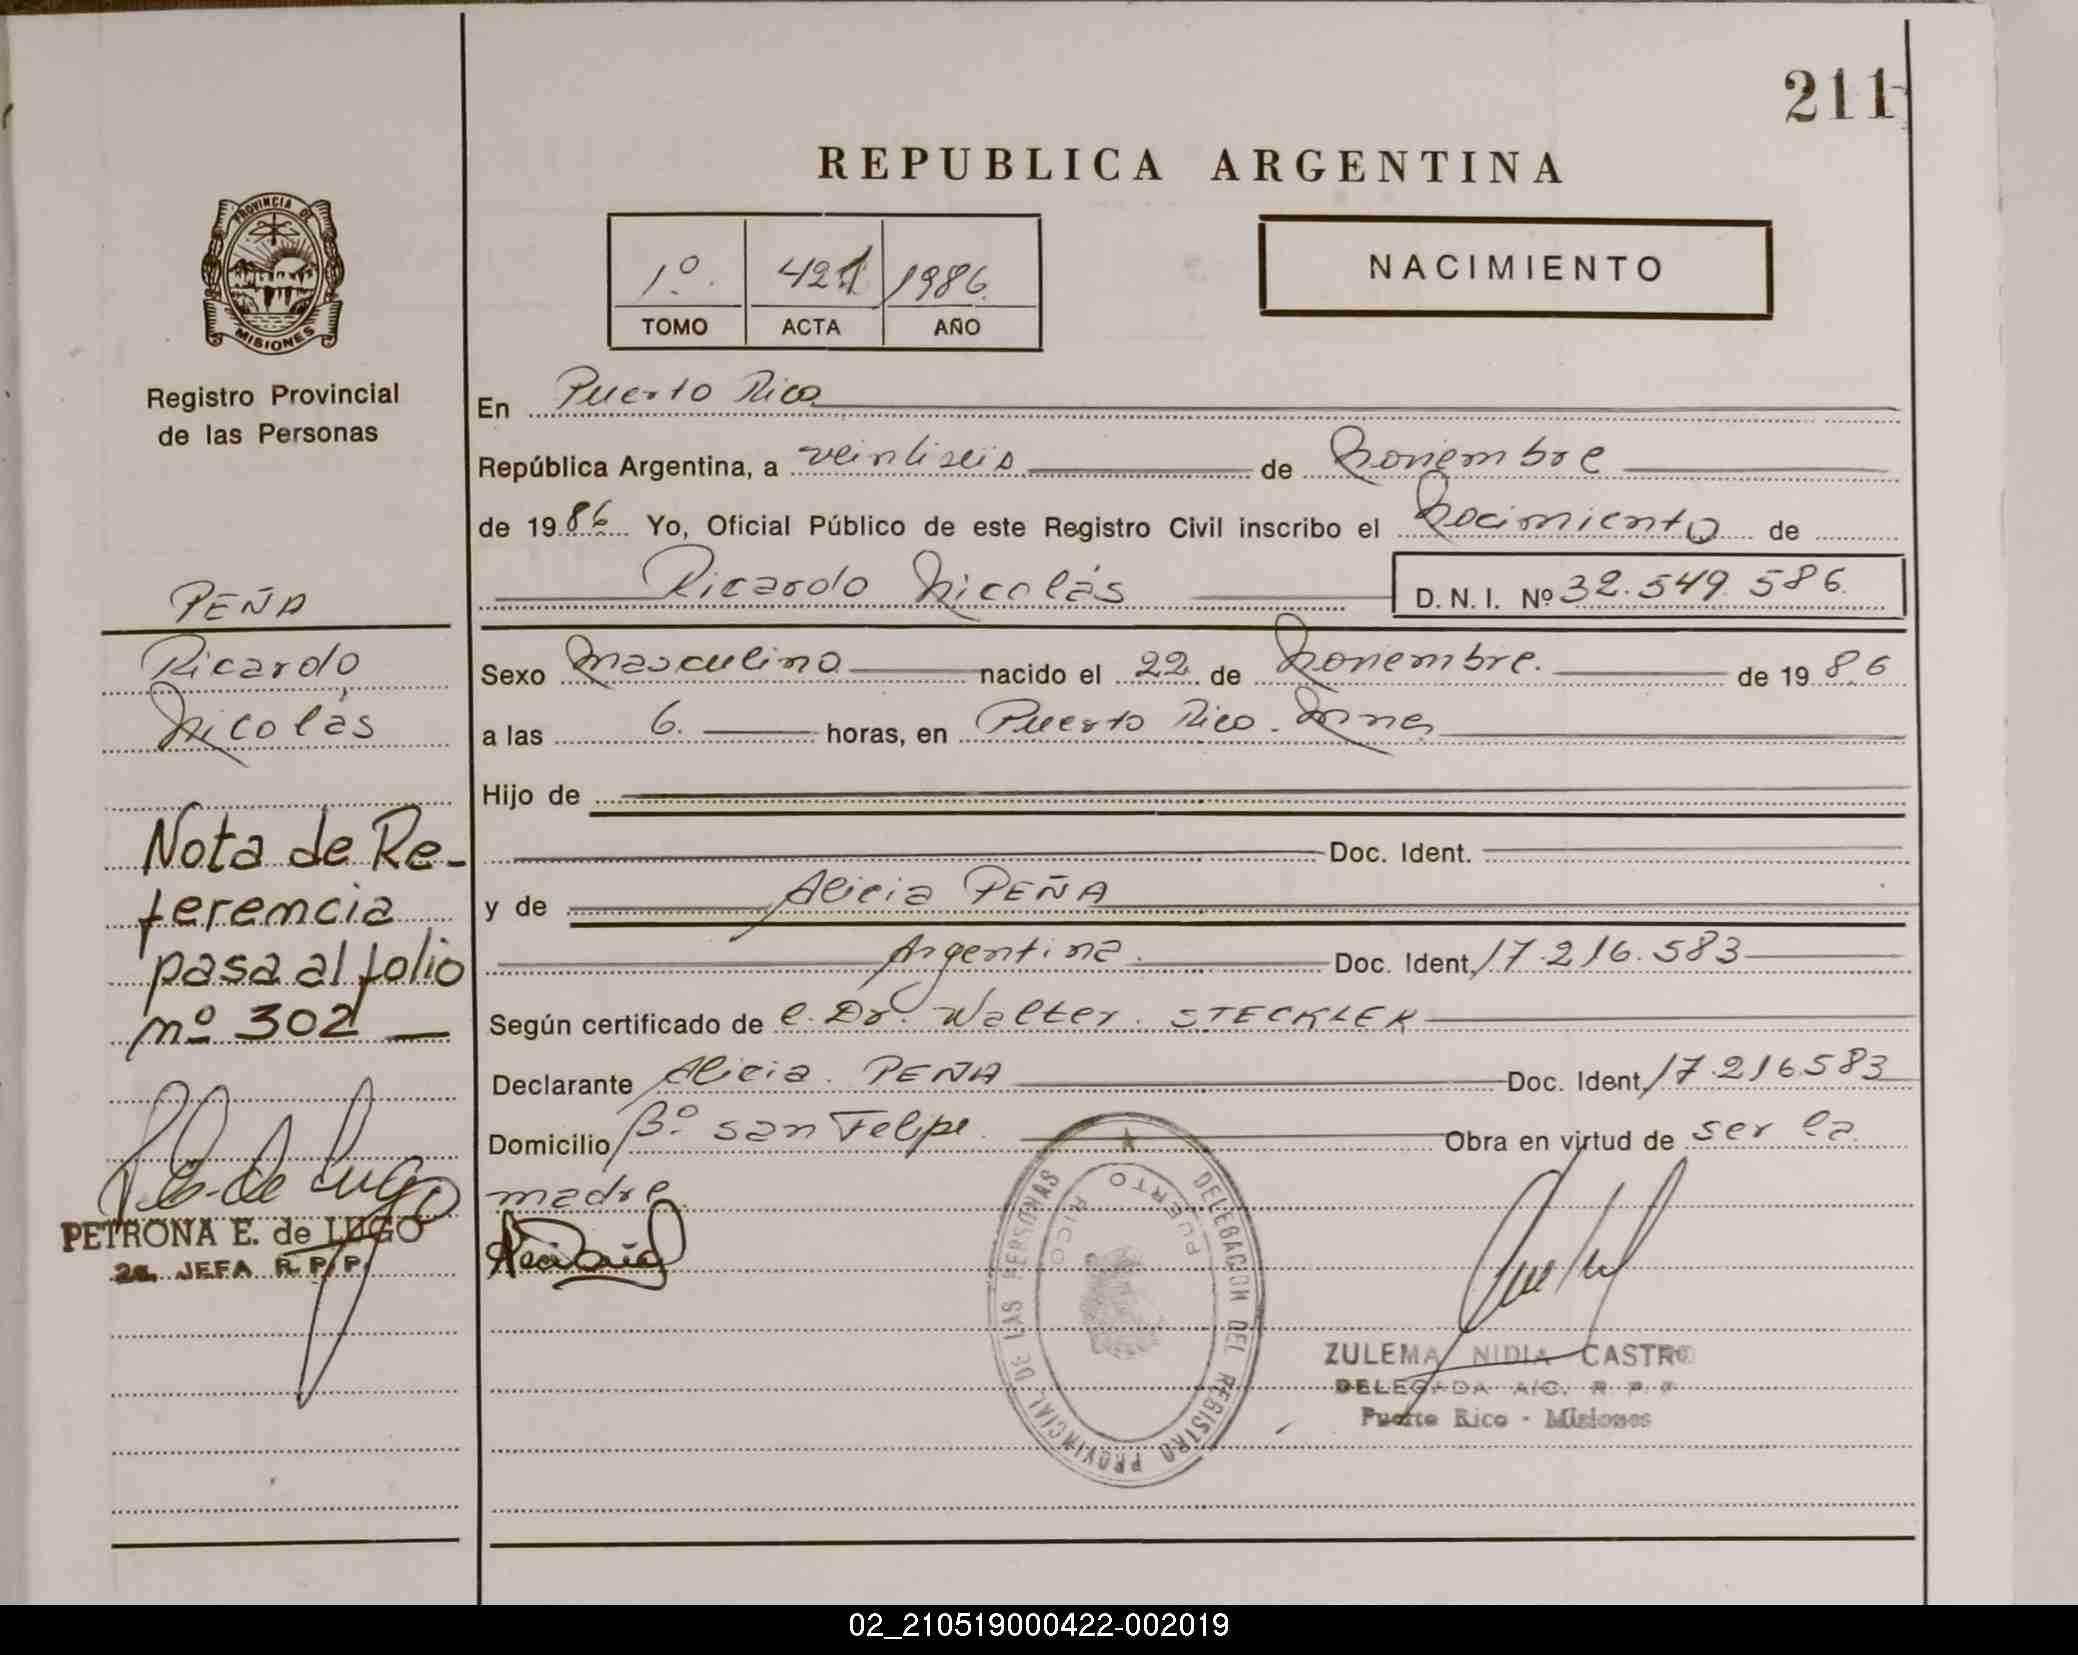 211
REPUBLICA ARGENTINA
PROVINCIA DE
MISIONES
Registro Provincial
de las Personas
1º. 421 1986
TOMO ACTA AÑO
NACIMIENTO
En Puerto Rico
República Argentina, a veintiseis de Noviembre
de 1986 Yo, Oficial Público de este Registro Civil inscribo el Nacimiento de
Ricardo Nicolás D.N.I. Nº 32.549.586
PEÑA
Ricardo
Nicolás
Sexo Masculino nacido el 22 de Noviembre. de 1986
a las 6. horas, en Puerto Rico. Mnes
Hijo de
Doc. Ident.
y de Alicia PEÑA
Argentina. Doc. Ident. 17.216.583
Según certificado de Dr. Walter. STECKLER
Declarante Alicia. PEÑA Doc. Ident. 17.216583
Domicilio Bº. san Felipe. Obra en virtud de ser la
madre
Nota de Re-
ferencia
pasa al folio
nº 302
P. E. de Lugo
PETRONA E. de LUGO
2a. JEFA R. P. P.
DELEGACION DEL REGISTRO PROVINCIAL DE LAS PERSONAS
PUERTO RICO
ZULEMA NIDIA CASTRO
DELEGADA A/C. R. P. P
Puerto Rico - Misiones
02_210519000422-002019